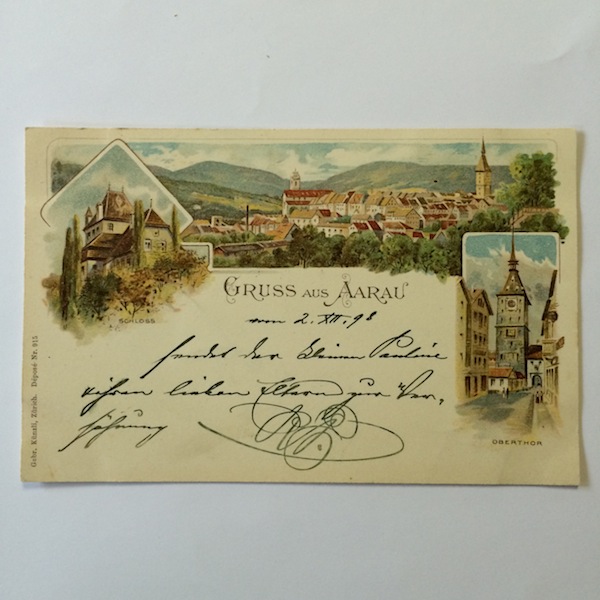 GRUSS AUS AARAU
vom 2. XII. 98
sendet der kleinen Pauline
u. ihren lieben Eltern zur "Ver-
söhnung
SCHLOSS
OBERTHOR
Gebr. Künzli, Zürich. Déposé Nr. 915